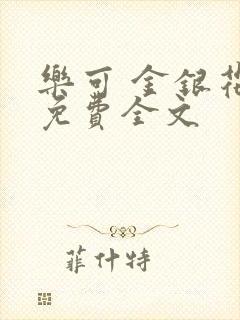 樂可 金銀花
免費全文
菲什特